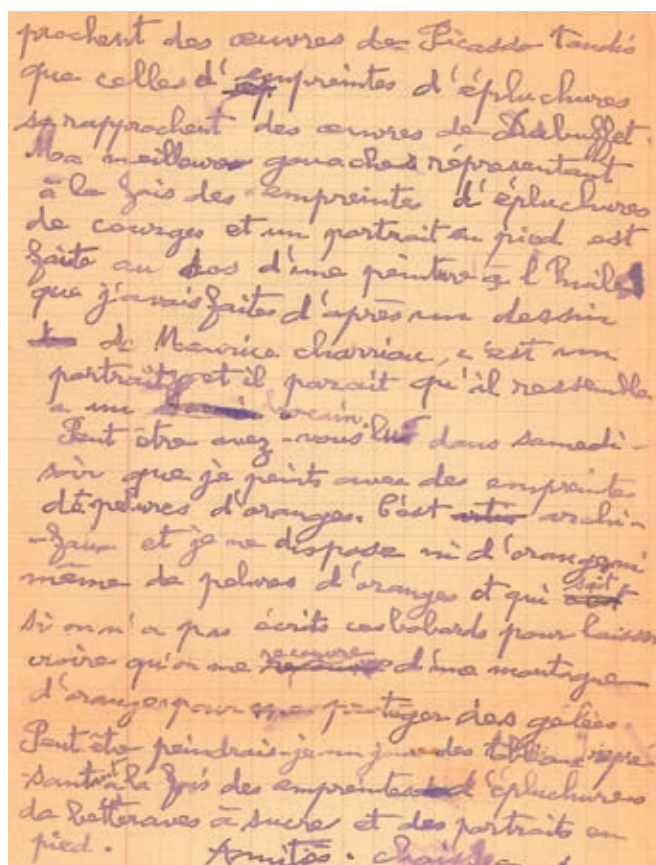 prochent des œuvres de Picasso tandis
que celles d'empreintes d'épluchures
se rapprochent des œuvres de Dubuffet.
Ma meilleure gouache représentant
à la fois des empreintes d'épluchures
de courges et un portrait en pied est
faite au dos d'une peinture à l'huile
que j'avais faites d'après un dessin
de Maurice charriau, c'est un
portrait et il parait qu'il ressemble
a un
Peut être avez-vous lu dans samedi-
soir que je peints avec des empreintes
de pelures d'oranges. C'est archi-
-faux et je ne dispose ni d'orange ni
même de pelures d'oranges et qui sait
si on n'a pas écrits ces bobards pour laisser
croire qu'on me recouvre d'une montagne
d'oranges pour me protéger des gelées.
Peut être peindrais-je un jour des tableaux repré-
-santant à la fois des empreintes d'épluchures
de betteraves à sucre et des portraits en
pied.
Amitiés.